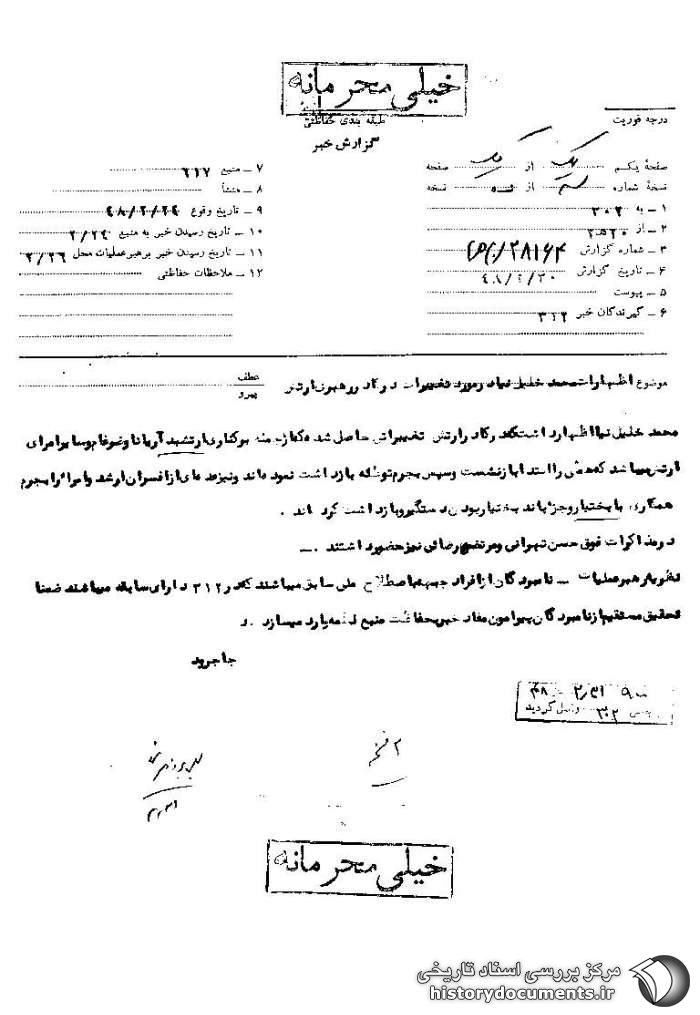 خیلی محرمانه
طبقه بندی حفاظتی
درجه فوریت
گزارش خبر
صفحهٔ یکم یک از یک صفحه
نسخهٔ شماره از نسخه
۱ ــ به ۳۰۲
۲ ــ از ۲۵۲۰
۳ ــ شماره گزارش ۲۸۱۶۴
۶ ــ تاریخ گزارش ۴۸/۲/۳۰
۵ ــ پیوست
۶ ــ گیرندگان خبر ۳۱۲
۷ ــ منبع ۶۱۷
۸ ــ منشأ
۹ ــ تاریخ وقوع ۴۸/۲/۲۴
۱۰ ــ تاریخ رسیدن خبر به منبع ۲/۲۴
۱۱ ــ تاریخ رسیدن خبر برهبر عملیات محل ۲/۲۶
۱۲ ــ ملاحظات حفاظتی
موضوع اظهارات محمد خلیل نیا در مورد تغییرات در کادر رهبری ارتش
عطف
پیرو
محمد خلیل نیا اظهار داشت که در کادر ارتش تغییراتی حاصل شده که از جمله برکناری ارتشبد آریانا و ضرغام و سایر امرای
ارتش میباشد که همگی را ابتدا بازنشست و سپس بجرم توطئه بازداشت نموده اند و نیز عده ای از افسران ارشد و امرا را بجرم
همکاری با بختیار و جزء باند بختیار بودن دستگیر و بازداشت کرده اند .
در مذاکرات فوق حسن تهرانی و مرتضی رضائی نیز حضور داشتند .ــ
نظریه رهبر عملیات ــ نامبردگان از افراد جبهه باصطلاح ملی سابق میباشند که در ۳۱۲ دارای سابقه میباشند ضمنا
تحقیق مستقیم از نامبردگان پیرامون مفاد خبر بحفاظت منبع لطمه وارد میسازد .د
جاجرود
۹۰۰ ۴۸/۲/۳۱
بخش ۳۰۲ واصل گردید
۲/۳۱
خیلی محرمانه
مرکز بررسی اسناد تاریخی
historydocuments.ir